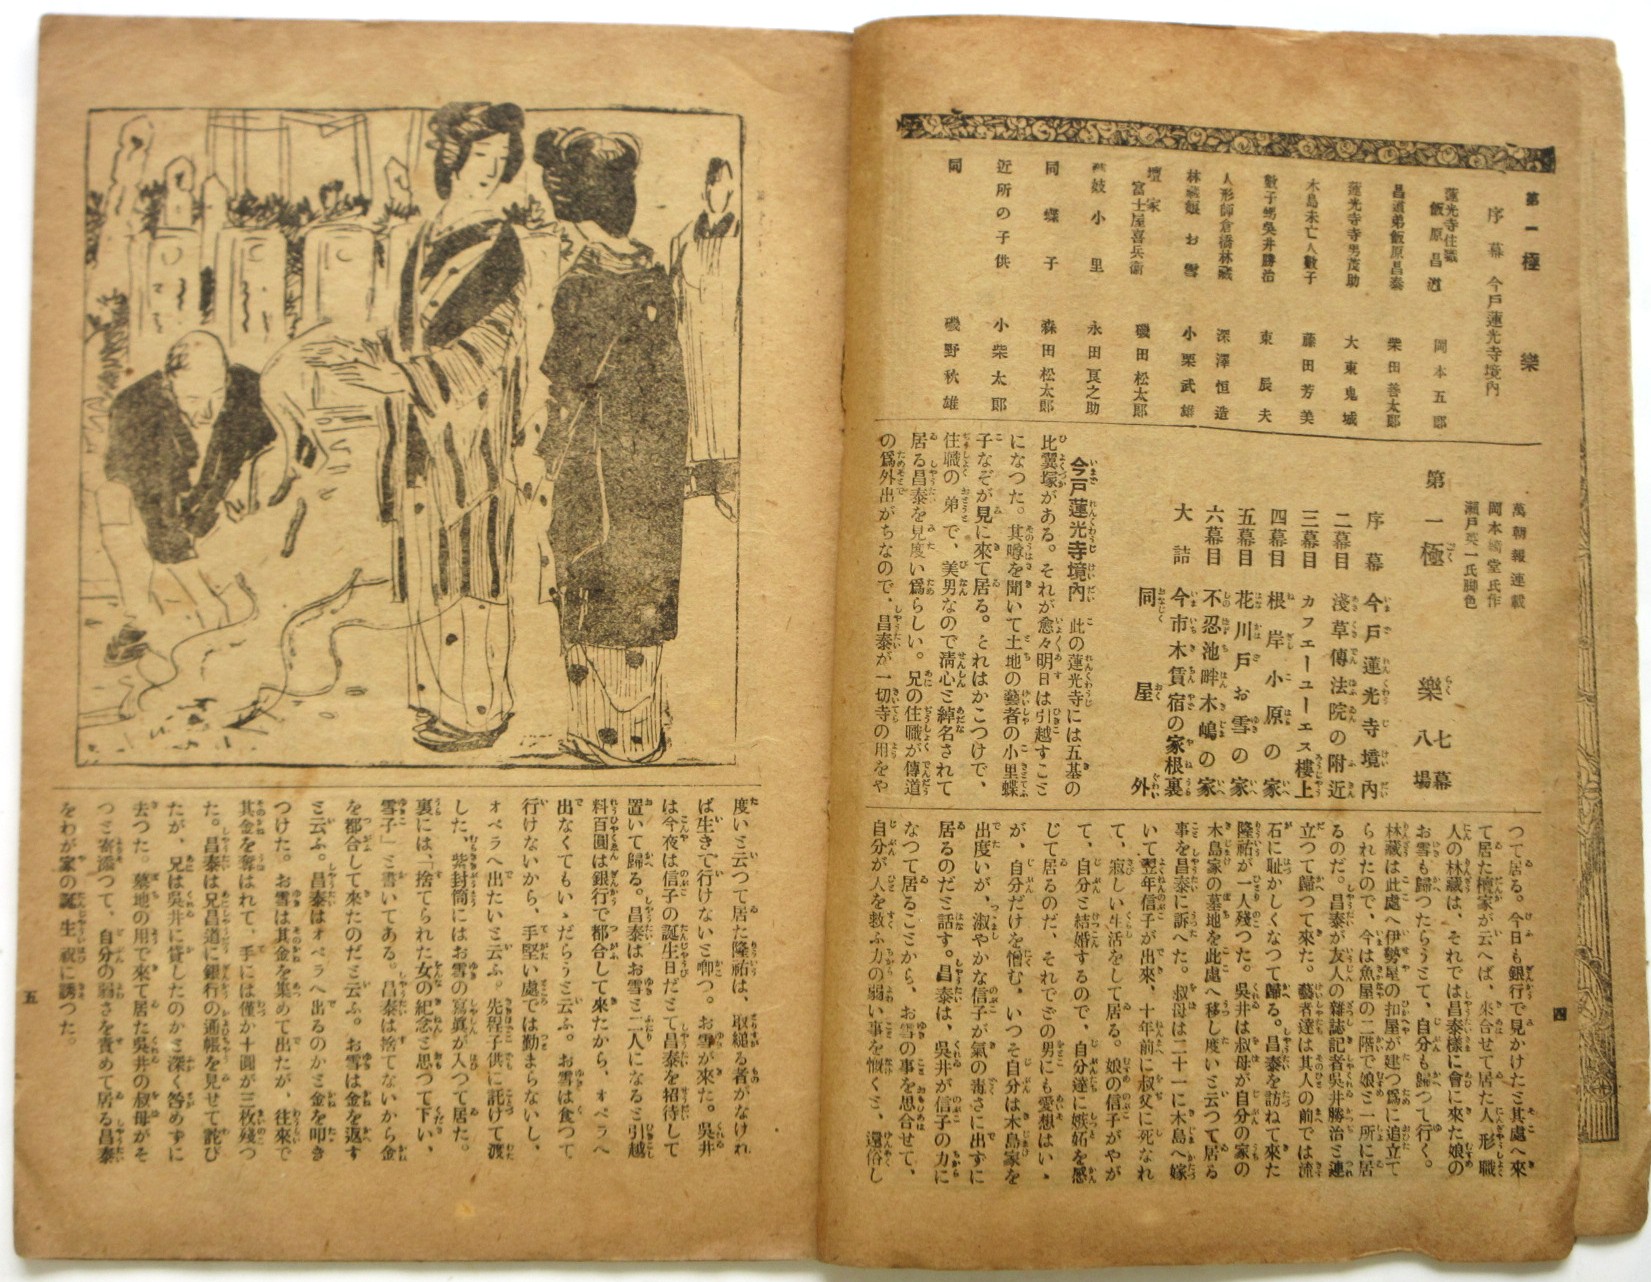 第一 極樂
序幕 今戸蓮光寺境内
蓮光寺住職
飯原昌道 岡本五郎
昌道弟飯原昌泰 柴田善太郎
蓮光寺寺男茂助 大東鬼城
木島未亡人數子 藤田芳美
數子甥吳井勝治 東辰夫
人形師倉橋林藏 深澤恒造
林藏娘お雪 小栗武雄
壇家
富士屋喜兵衞 磯田松太郎
藝妓小里 永田良之助
同 蝶子 森田松太郎
近所の子供 小柴太郎
同 磯野秋雄
萬朝報連載
岡本綺堂氏作
瀬戸英一氏脚色
第一 極樂 七幕八場
序幕 今戸蓮光寺境内
二幕目 淺草傳法院の附近
三幕目 カフエーユーエス樓上
四幕目 根岸小原の家
五幕目 花川戸お雪の家
六幕目 不忍池畔木嶋の家
大詰 今市木賃宿の家根裏
同 屋外
今戸蓮光寺境内 此の蓮光寺には五基の
比翼塚がある。それが愈々明日は引越すこと
になつた。其噂を聞いて土地の藝者の小里蝶
子なぞが見に來て居る。それはかこつけで、
住職の弟で、美男なので清心と綽名されて
居る昌泰を見度い爲らしい。兄の住職が傳道
の爲外出がちなので、昌泰が一切寺の用をや
つて居る。今日も銀行で見かけたと其處へ來
て居た檀家が云へば、來合せて居た人形職
人の林藏は、それでは昌泰樣に會に來た娘の
お雪も歸つたらうとて、自分も歸つて行く。
林藏は此處へ伊勢屋の扣屋が建つ爲に追立て
られたので、今は魚屋の二階で娘と一所に居
るのだ。昌泰が友人の雜誌記者吳井勝治と連
立つて歸つて來た。藝者達は其人の前では流
石に耻かしくなつて歸る。昌泰を訪ねて來た
隆祐が一人殘つた。吳井は叔母が自分の家の
木島家の墓地を此處へ移し度いと云つて居る
事を昌泰に訴へた。叔母は二十一に木島へ嫁
いて翌年信子が出來、十年前に叔父に死なれ
て、寂しい生活をして居る。娘の信子がやが
て、自分と結婚するので、自分達に嫉妬を感
じて居るのだ、それでどの男にも愛想はいゝ
が、自分だけを憎む、いつそ自分は木島家を
出度いが、淑やかな信子が氣の毒さに出ずに
居るのだと話す。昌泰は、吳井が信子の力に
なつて居ることから、お雪の事を思合せて、
自分が人を救ふ力の弱い事を慨くと、還俗し
四
度いと云つて居た隆祐は、取縋る者がなけれ
ば生きて行けないと啣つ。お雪が來た。吳井
は今夜は信子の誕生日だとて昌泰を招待して
置いて歸る。昌泰はお雪と二人になると引越
料百圓は銀行で都合して來たから、オペラへ
出なくてもいゝだらうと云ふ。お雪は食つて
行けないから、手堅い處では勤まらないし、
オペラへ出たいと云ふ。先程子供に託けて渡
した、紫封筒にはお雪の寫眞が入つて居た。
裏には、「捨てられた女の紀念と思つて下い、
雪子」と書いてある。昌泰は捨てないから金
を都合して來たのだと云ふ。お雪は金を返す
と云ふ。昌泰はオペラへ出るのかと金を叩き
つけた。お雪は其金を集めて出たが、往來で
其金を奪はれて、手には僅か十圓が三枚殘つ
た。昌泰は兄昌道に銀行の通帳を見せて詫び
たが、兄は吳井に貸したのかと深く咎めずに
去つた。墓地の用で來て居た吳井の叔母がそ
つと寄添つて、自分の弱さを責めて居る昌泰
をわが家の誕生祝に誘つた。
五